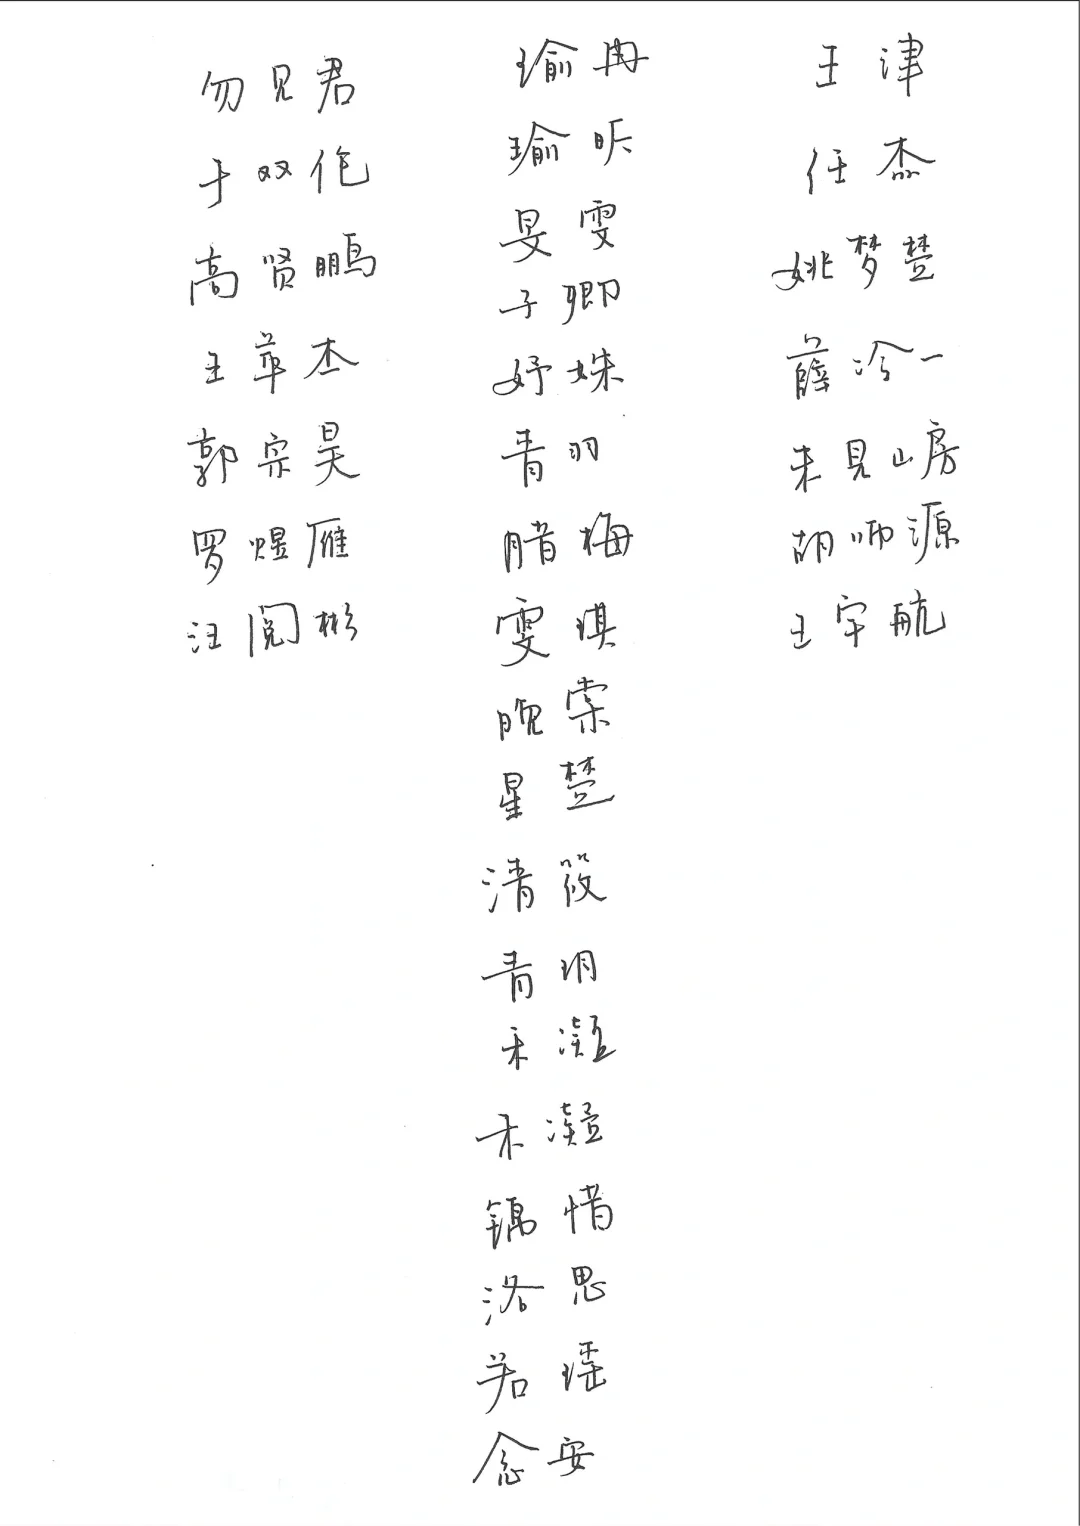 勿见君
于双伦
高贤鹏
王苹杰
郭宗昊
罗煜雁
汪阅彬
瑜冉
瑜昕
旻雯
子卿
妤姝
青羽
腊梅
雯琪
晚棠
星楚
清筱
青玥
禾凝
木凝
锦惜
洛思
若瑶
念安
王津
任杰
姚梦楚
薛冷一
未见山房
胡师源
王宇航